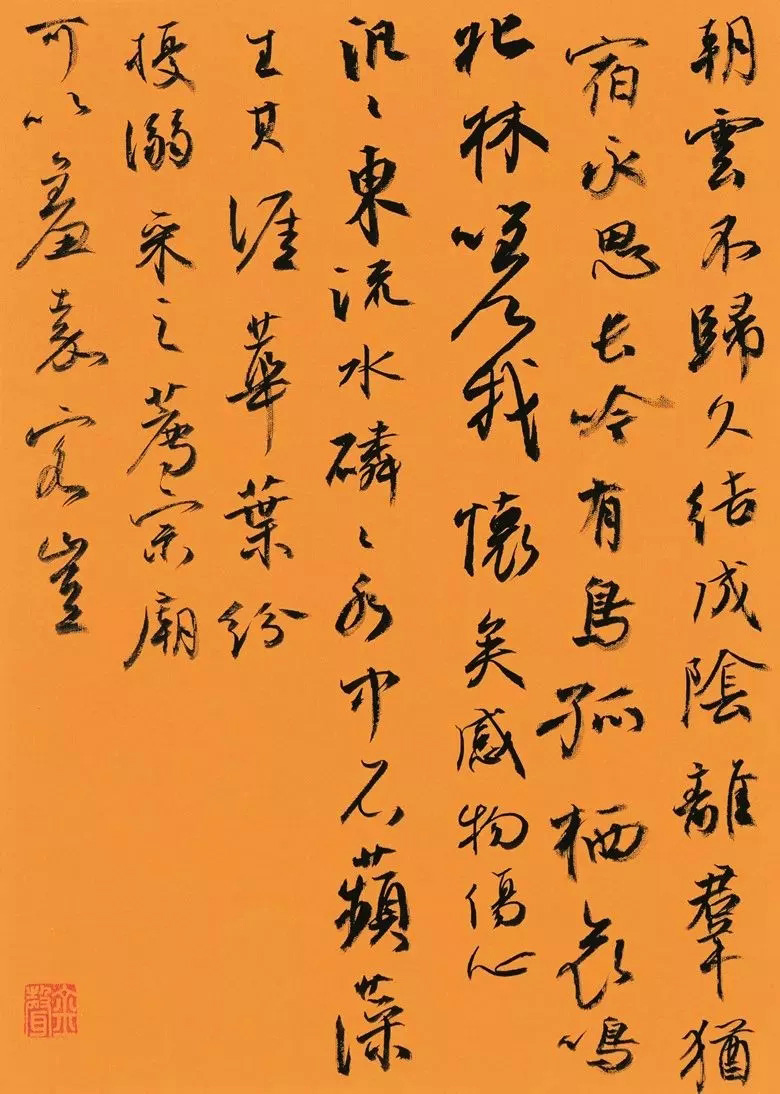 朝雲不歸久結成陰離羣猶
宿永思長吟有鳥孤栖哀鳴
北林嗟我懷矣感物傷心
汎〻東流水磷〻水中石蘋藻
生其涯華葉紛
擾溺采之薦宗廟
可以羞嘉客豈